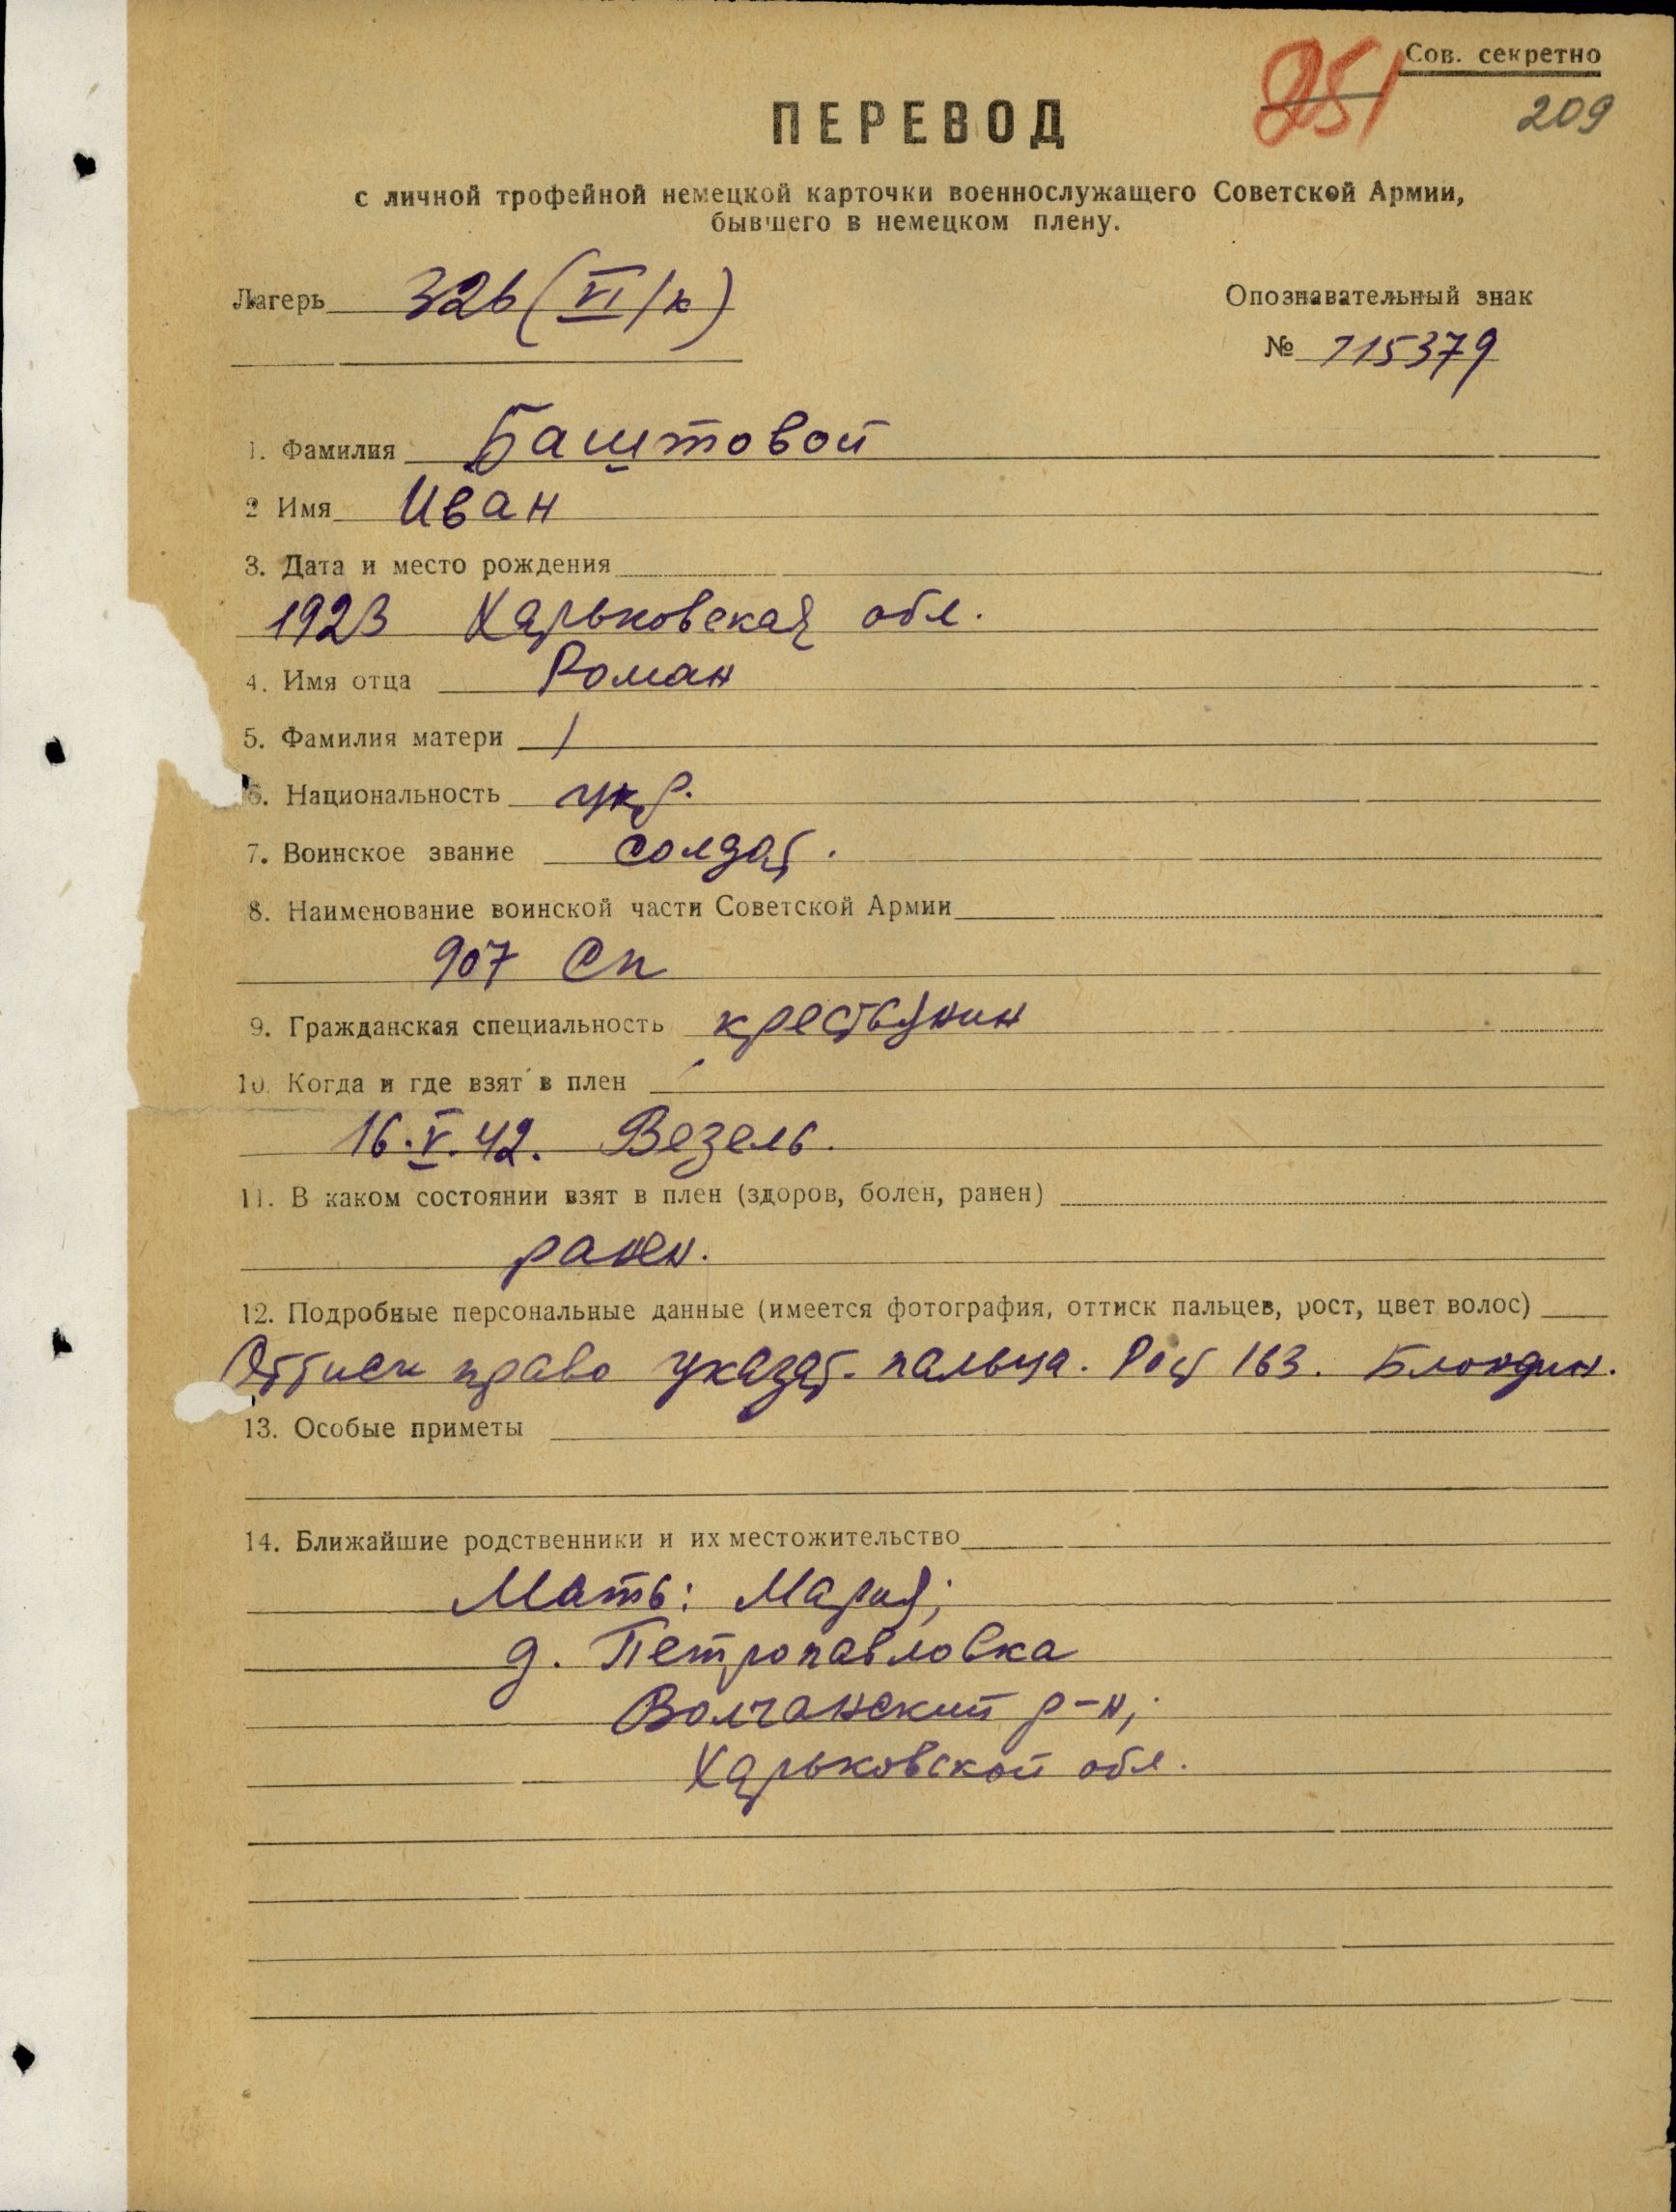 Сов. секретно
251
209
ПЕРЕВОД
с личной трофейной немецкой карточки военнослужащего Советской Армии,
бывшего в немецком плену.
Лагерь 326 (VI/к)
Опознавательный знак
№ 115379
1. Фамилия Баштовой
2 Имя Иван
3. Дата и место рождения
1923 Харьковская обл.
4. Имя отца Роман
5. Фамилия матери /
6. Национальность укр.
7. Воинское звание солдат.
8. Наименование воинской части Советской Армии
907 Сп
9. Гражданская специальность крестьянин
10. Когда и где взят в плен
16.V.42. Везель.
11. В каком состоянии взят в плен (здоров, болен, ранен)
ранен.
12. Подробные персональные данные (имеется фотография, оттиск пальцев, рост, цвет волос)
Оттиск право указат. пальца. Рост 163. Блондин.
13. Особые приметы
14. Ближайшие родственники и их местожительство
Мать: Мария;
д. Петропавловка
Волчанский р-н;
Харьковской обл.